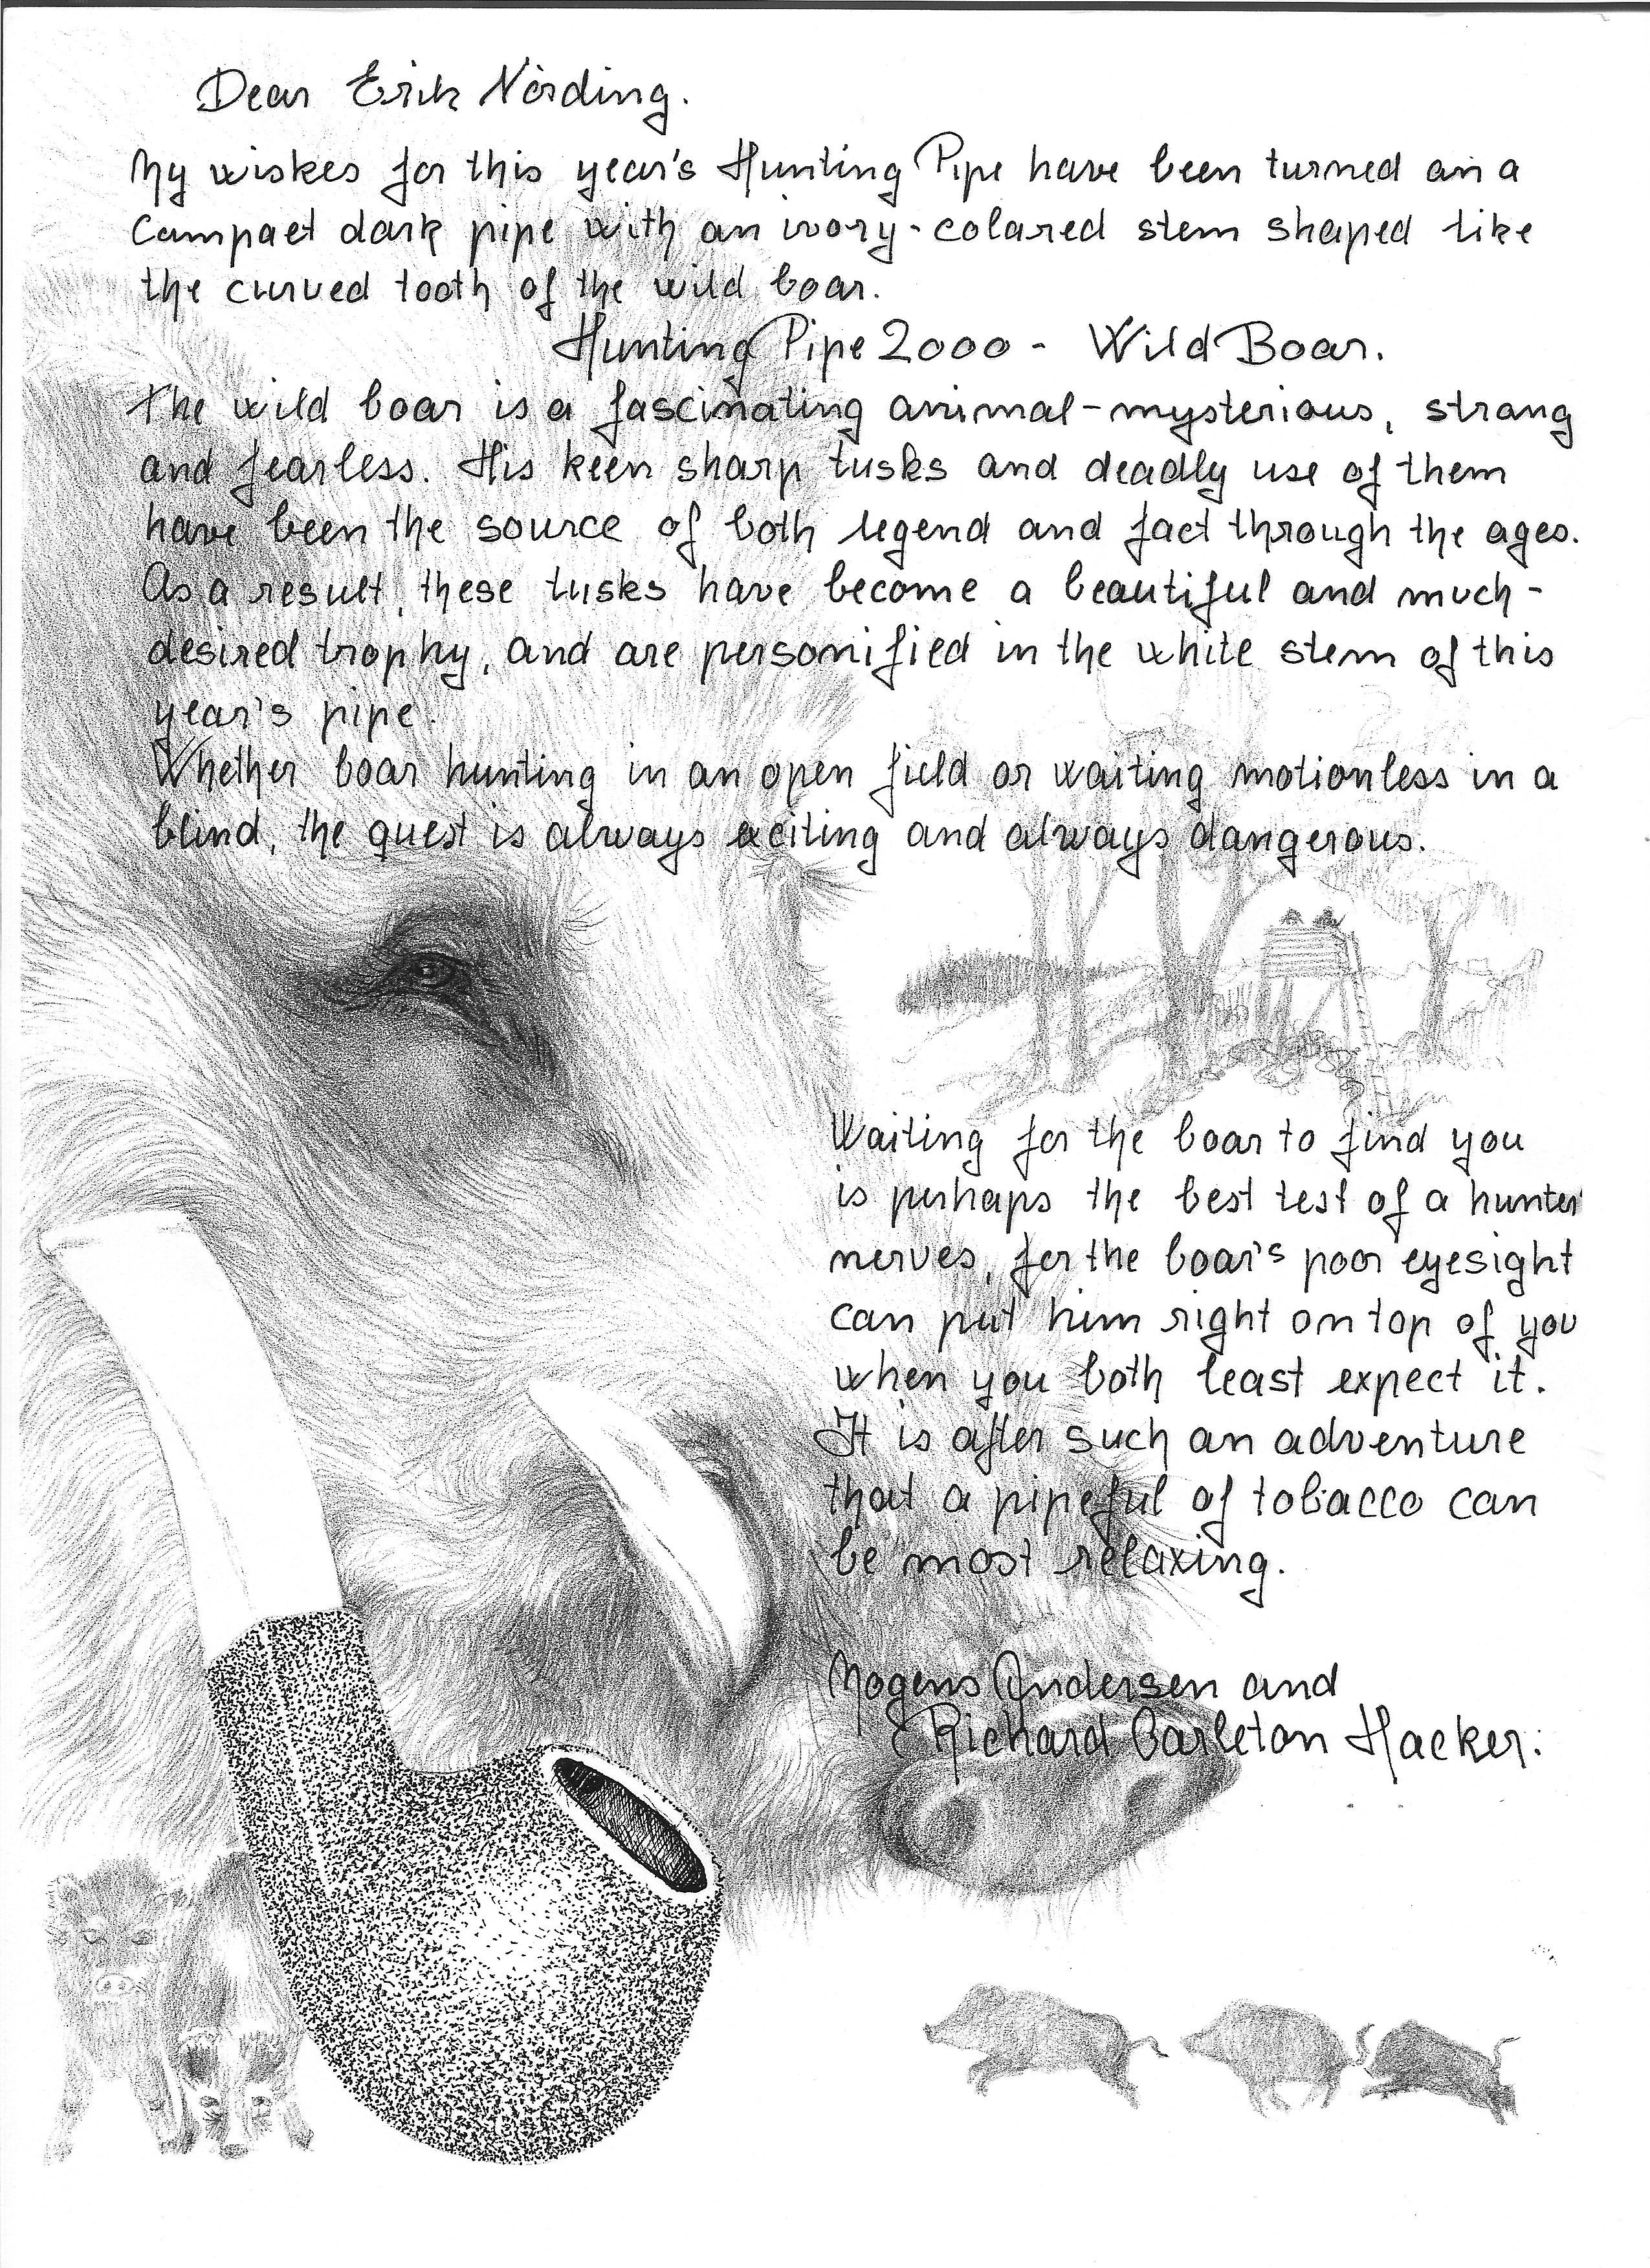 Dear Erik Nörding.
My wishes for this year's Hunting Pipe have been turned on a
compact dark pipe with an ivory-colored stem shaped like
the curved tooth of the wild boar.
Hunting Pipe 2000 - Wild Boar.
The wild boar is a fascinating animal-mysterious, strong
and fearless. His keen sharp tusks and deadly use of them
have been the source of both legend and fact through the ages.
As a result, these tusks have become a beautiful and much-
desired trophy, and are personified in the white stem of this
year's pipe.
Whether boar hunting in an open field or waiting motionless in a
blind, the quest is always exciting and always dangerous.
Waiting for the boar to find you
is perhaps the best test of a hunter
nerves, for the boar's poor eyesight
can put him right on top of you
when you both least expect it.
It is after such an adventure
that a pipeful of tobacco can
be most relaxing.
Mogens Andersen and
Richard Carleton Hacker.